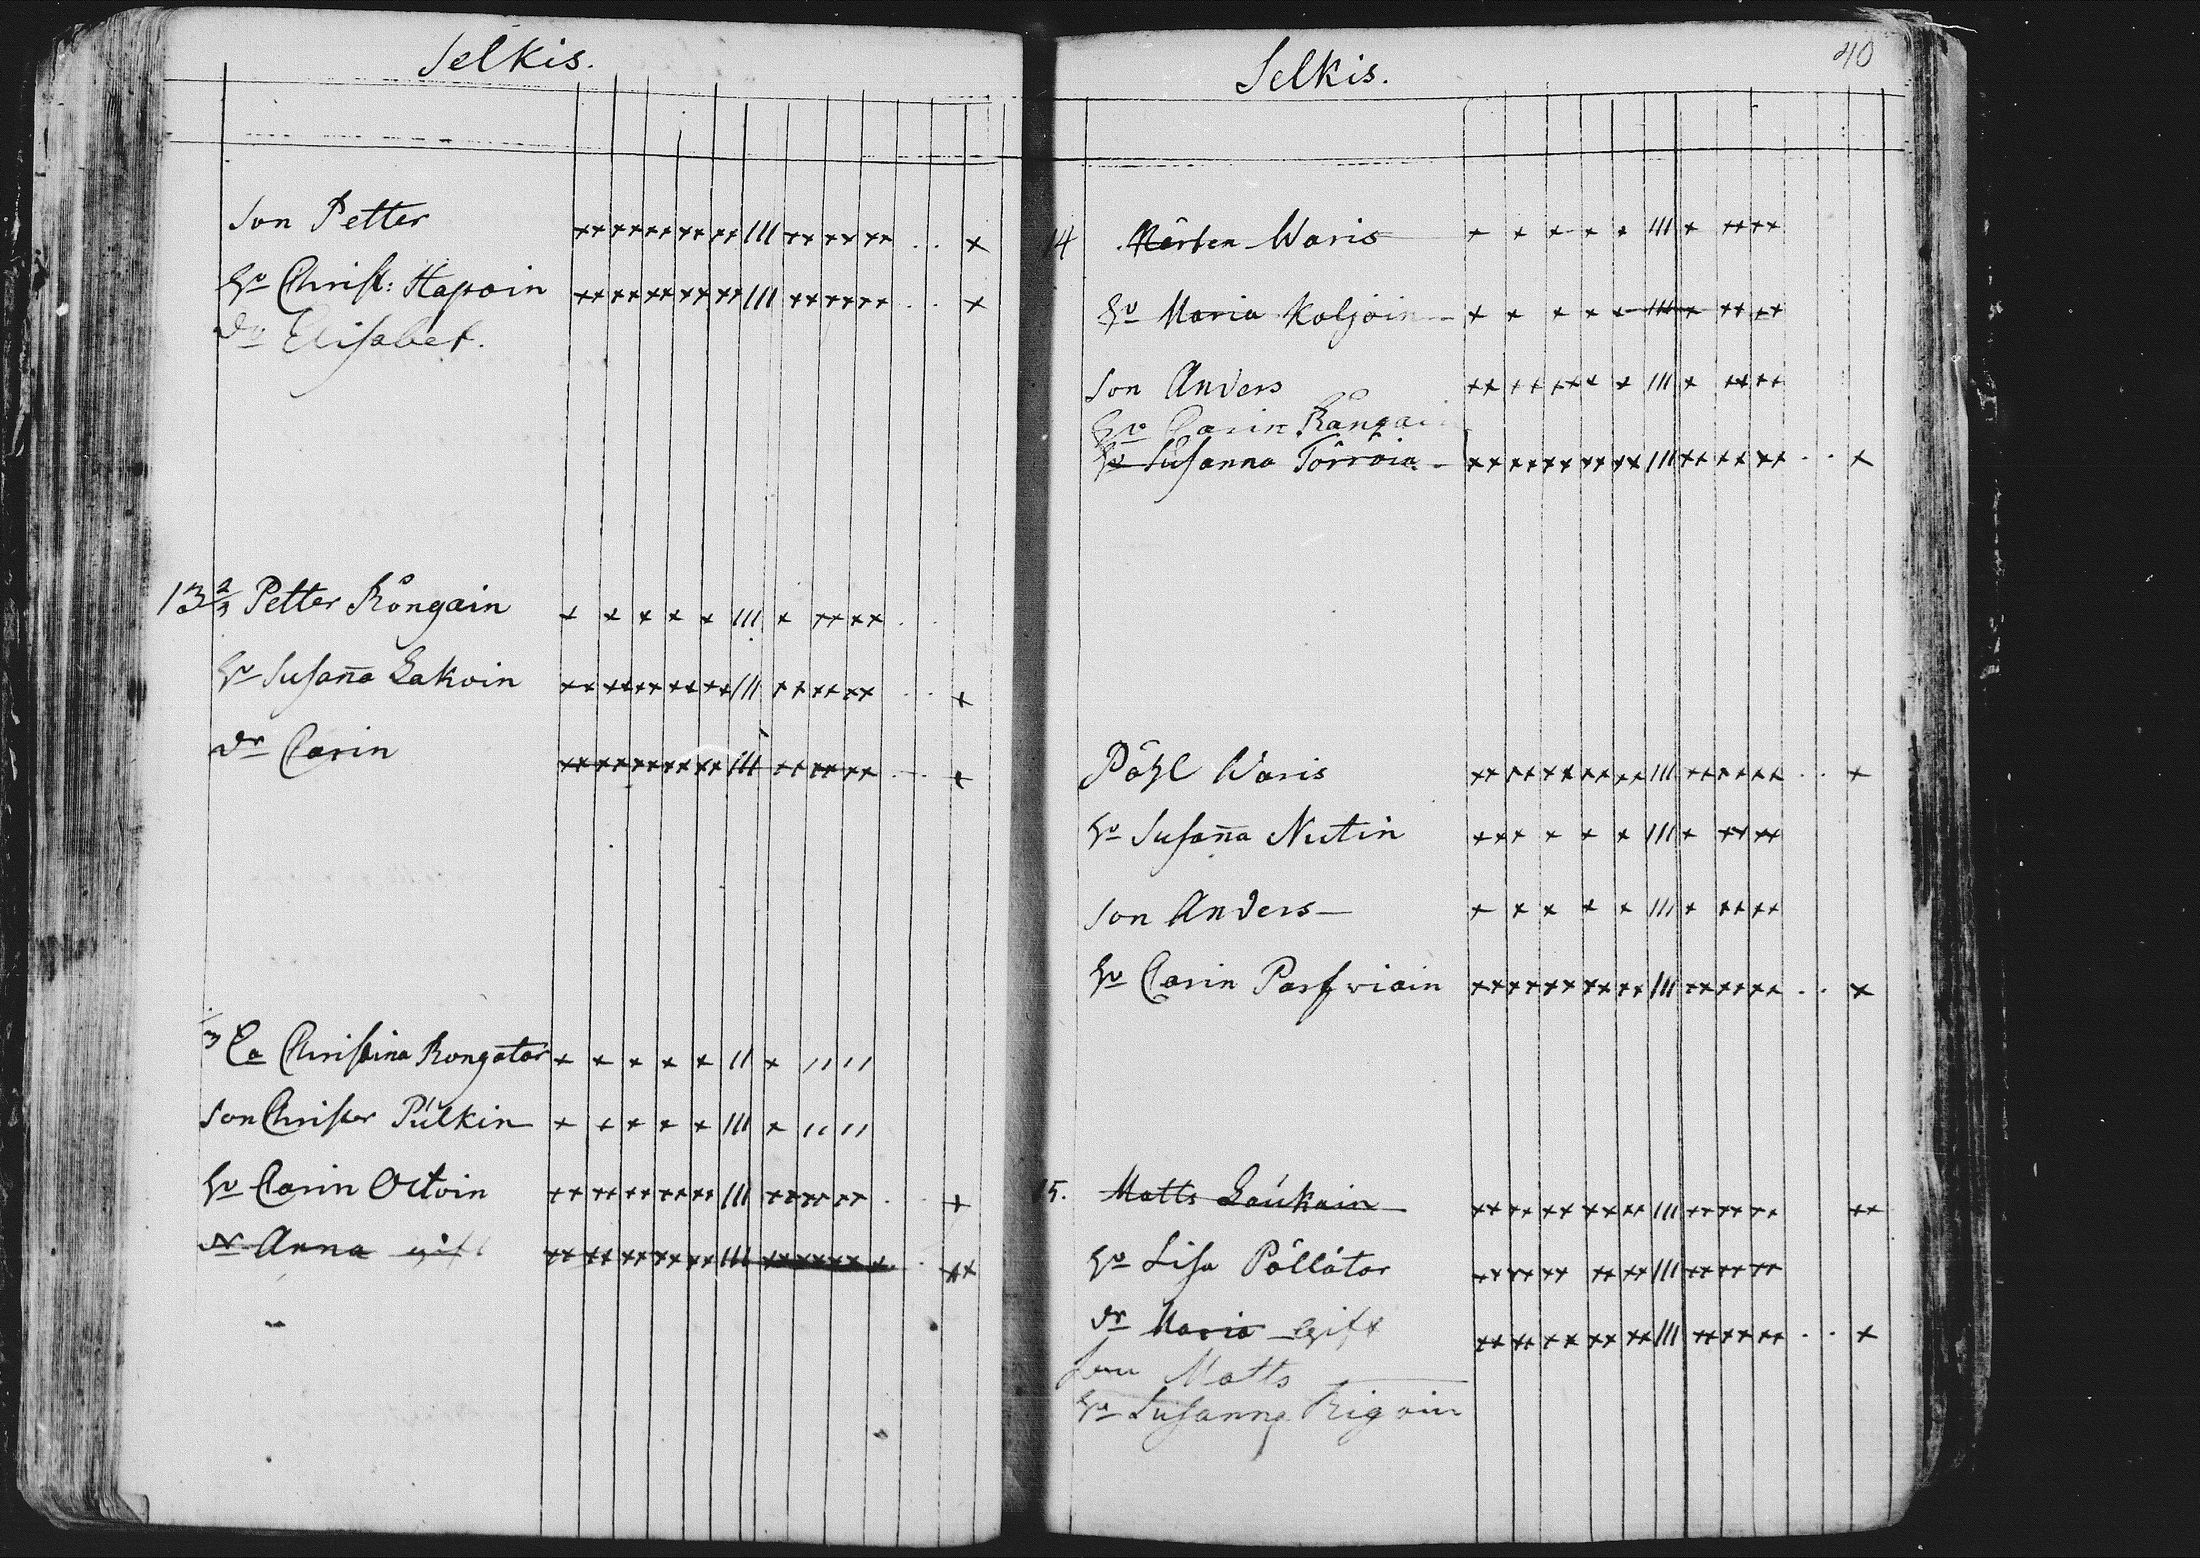 Selkis.
Son Petter
Hu Christ: Hapoin
Dr Elisabet.
13 2/3 Petter Rångain
Hu Susan̄a Lakoin
Dr Carin
1/3 Ea Christina Rongatar
Son Christer Pulkin
Hu Carin Octoin
Dr Anna gift
Selkis.
40
14 Mårten Waris
Hu Maria Koljoin
Son Anders
Hu Carin Rångai
Hu Susanna Törröin
Påhl Waris
Hu Susan̄a Nutin
Son Anders
Hu Carin Parfwiain
15. Matts Laukain
Hu Lisa Pöllätar
Dr Maria Gift
Son Matts
Hu Susanna Rigoin